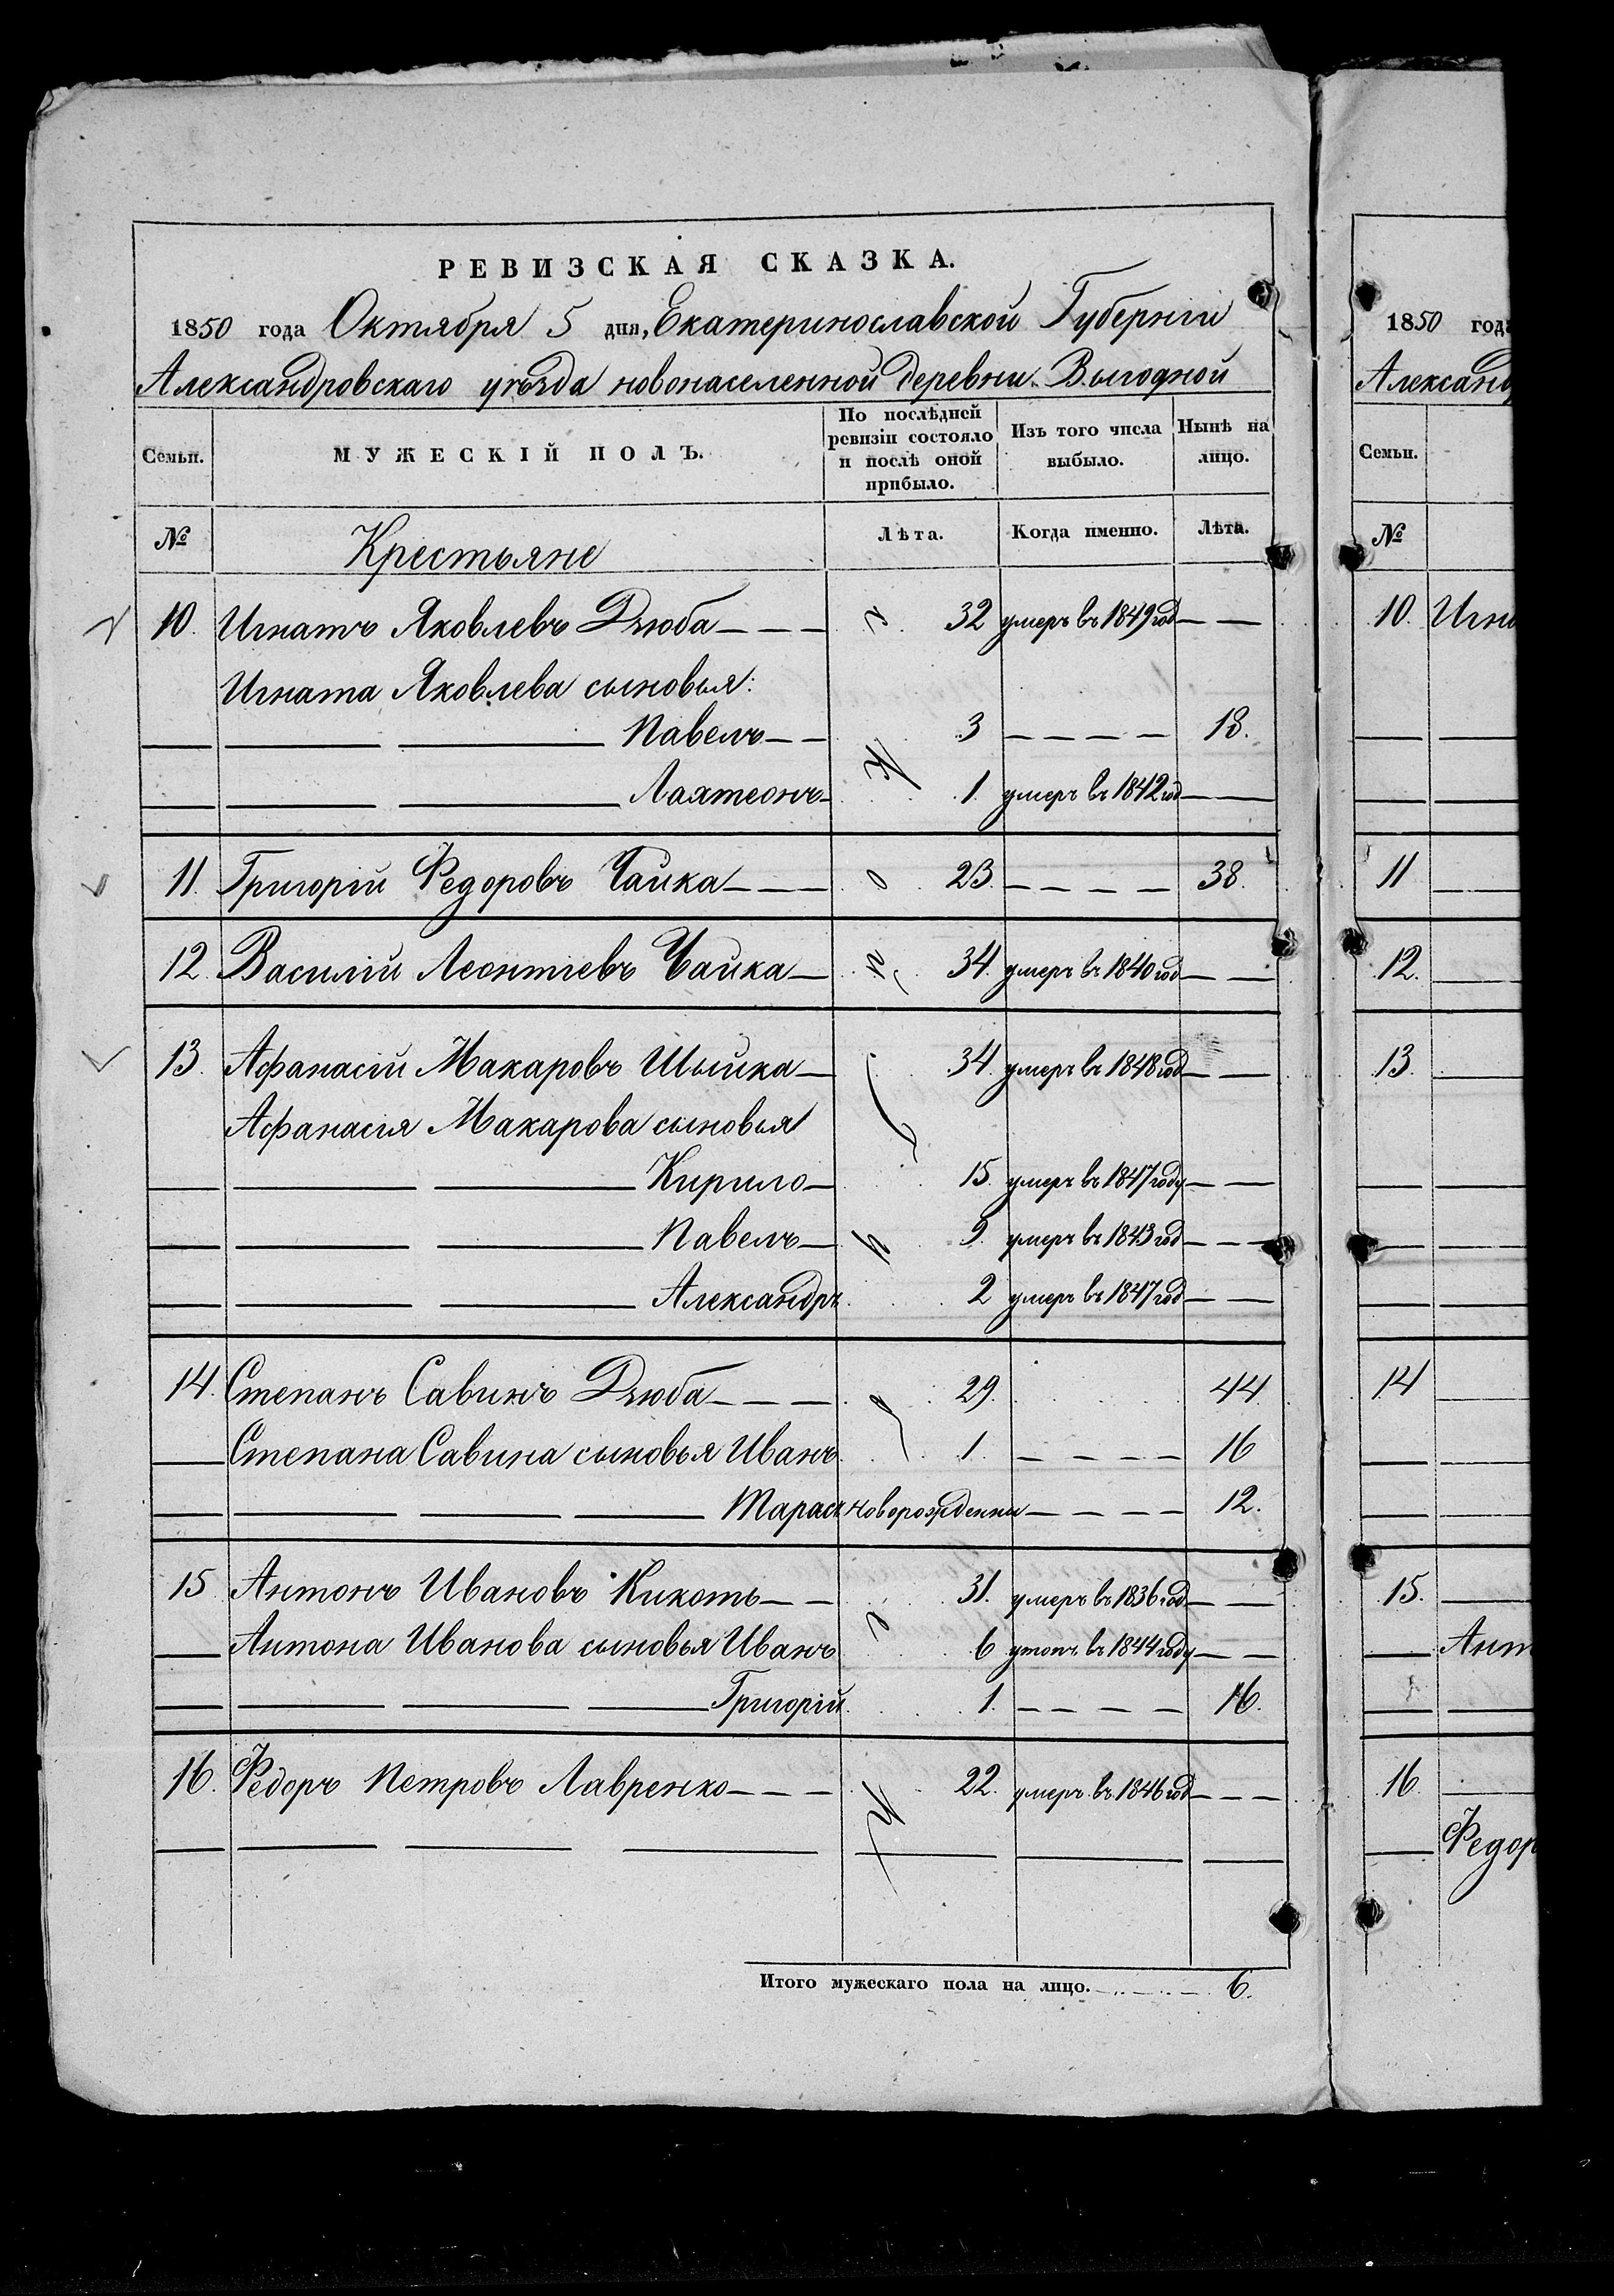 РЕВИЗСКАЯ СКАЗКА.
1850 года Октября 5 дня, Екатеринославской Губерніи
Александровскаго уѣзда новонаселенной деревни Выгодной
Семьи. МУЖЕСКІЙ ПОЛЪ. По послѣдней ревизіи состояло и послѣ оной прибыло. Изъ того числа выбыло. Нынѣ на лицо.
№ Крестьяне Лѣта. Когда именно. Лѣта.
10. Игнатъ Яковлевъ Дзюба 32 умеръ въ 1849 год
Игната Яковлева сыновья:
Павелъ 3 18.
1. умеръ въ 1842 год
11. Григорій Федоровъ Чайка 23. 38.
12. Василій Леонтіевъ Чайка 34. умеръ въ 1840 год
13. Афанасій Макаровъ 34. умеръ въ 1848 год
Афанасія Макарова сыновья
Кирило 15. умеръ въ 1847 году
Павелъ 9. умеръ въ 1843 год
Александръ 2 умеръ въ 1847 год
14. Степанъ Савинъ Дзюба 29. 44.
Степана Савина сыновья Иванъ 1. 16
Тарасъ новорожденны 12.
15 Антонъ Ивановъ Кикоть 31. умеръ въ 1836 год
Антона Иванова сыновья Иванъ 6 утопъ въ 1844 году
Григорій 1. 16.
16. Федоръ Петровъ Лавренко 22. умеръ въ 1846 год
Итого мужескаго пола на лицо. 6.
1850 года
Александ
Семьи.
№
10. Игна
11
12.
13.
14
15.
Ант
16.
Федор